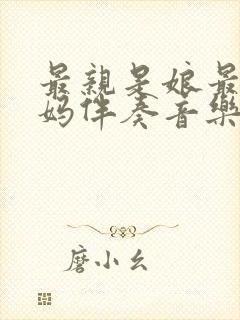 最親是娘最
媽伴奏音樂
磨小幺